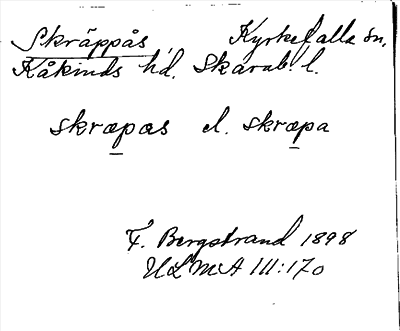 Skräppås Kyrkefalla sn.
Kåkinds hd. Skarab. l.
skræpas el. skræpa
F. Bergstrand 1898
ULMA 111:170